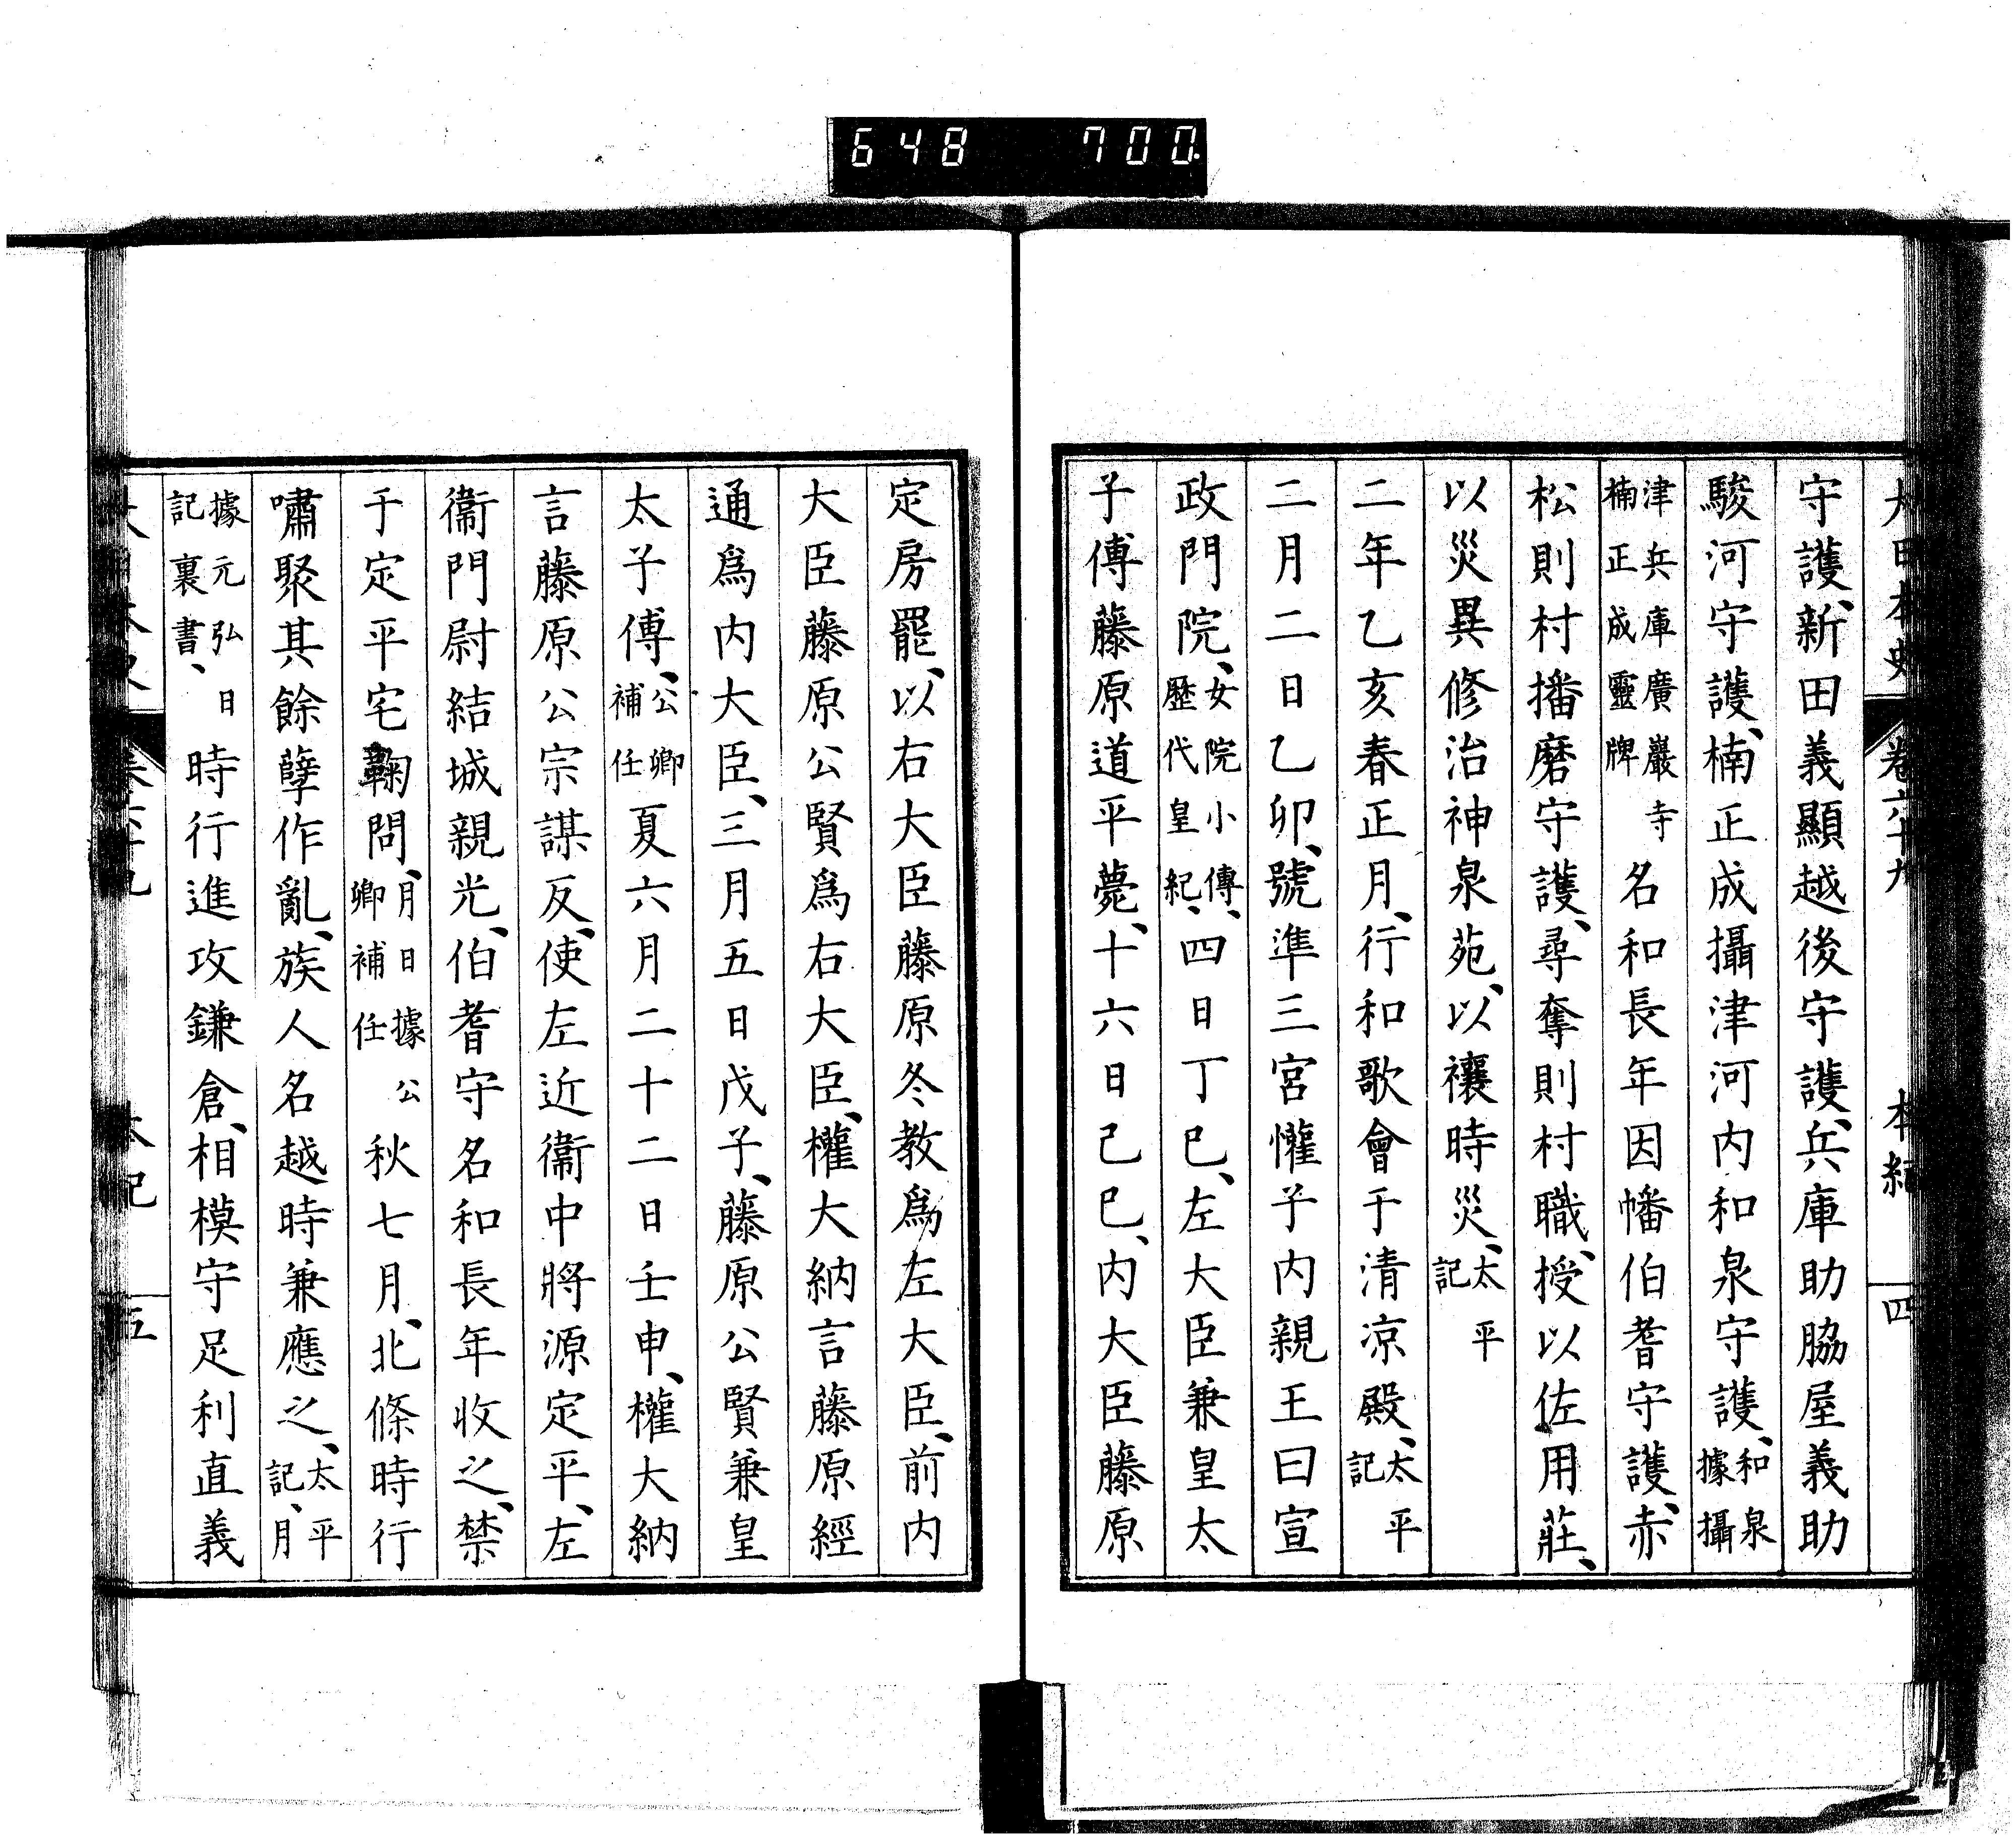 648 700.
大日本史 卷六十九 本紀 四
守護、新田義顯越後守護、兵庫助脇屋義助
駿河守護、楠正成攝津河内和泉守護、和泉據攝
津兵庫廣嚴寺楠正成靈牌名和長年因幡伯耆守護、赤
松則村播磨守護、尋奪則村職、授以佐用莊、
以災異修治神泉苑、以禳時災、太平記
二年乙亥春正月、行和歌會于清凉殿、太平記
二月二日乙卯、號準三宮懽子内親王曰宣
政門院、女院小傳、歷代皇紀、四日丁巳、左大臣兼皇太
子傅藤原道平薨、十六日己巳、内大臣藤原
定房罷、以右大臣藤原冬教爲左大臣、前内
大臣藤原公賢爲右大臣、權大納言藤原經
通爲内大臣、三月五日戊子、藤原公賢兼皇
太子傅、公卿補任夏六月二十二日壬申、權大納
言藤原公宗謀反、使左近衞中將源定平、左
衞門尉結城親光、伯耆守名和長年收之、禁
于定平宅鞠問、月日據公卿補任秋七月、北條時行
嘯聚其餘孽作亂、族人名越時兼應之、太平記、月
日據元弘記裏書、時行進攻鎌倉、相模守足利直義
五